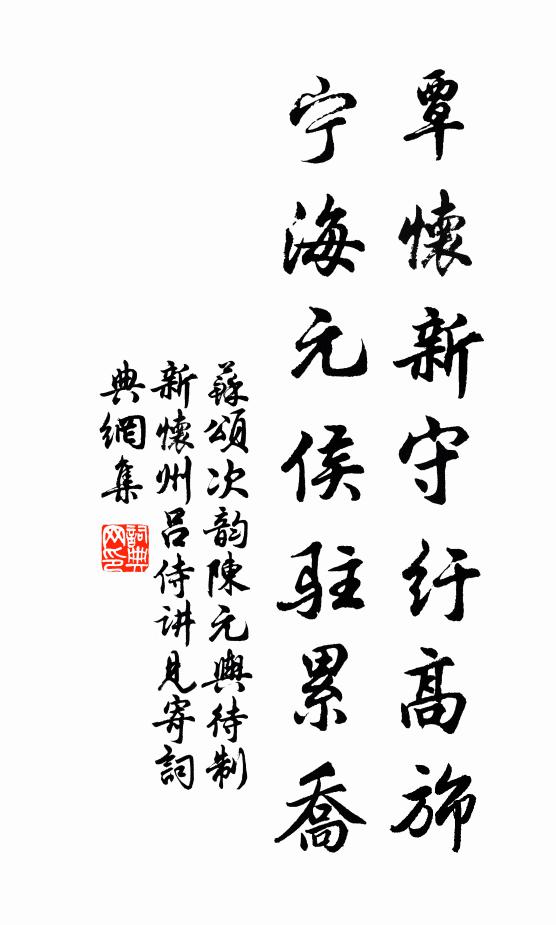 覃懷新守紆高旆
宁海元侯駐累喬
蘇頌次韵陳元輿待制
新懷州吕侍讲見寄詞
典網集
詞典
网印